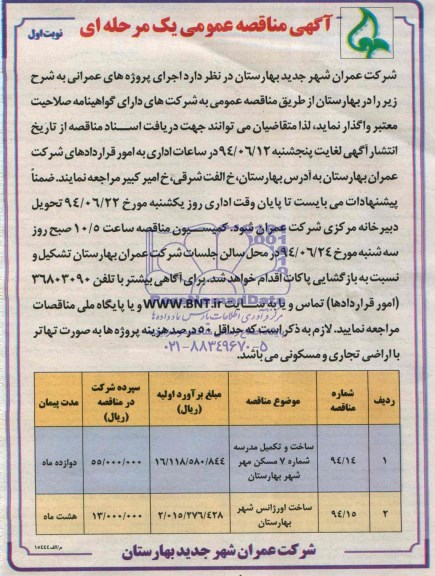 آگهی مناقصه عمومی یک مرحله ای
نوبت اول
شرکت عمران شهر جدید بهارستان در نظر دارد اجرای پروژه های عمرانی به شرح
زیر را در بهارستان از طریق مناقصه عمومی به شرکت های دارای گواهینامه صلاحیت
معتبر واگذار نماید، لذا متقاضیان می توانند جهت دریافت اسناد مناقصه از تاریخ
انتشار آگهی لغایت پنجشنبه ۹۴/۰۶/۱۲ در ساعات اداری به امور قراردادهای شرکت
عمران بهارستان به آدرس بهارستان، خ الفت شرقی، خ امیر کبیر مراجعه نمایند. ضمناً
پیشنهادات می بایست تا پایان وقت اداری روز یکشنبه مورخ ۹۴/۰۶/۲۲ تحویل
دبیرخانه مرکزی شرکت عمران شود. کمیسیون مناقصه ساعت ۱۰/۵ صبح روز
سه شنبه مورخ ۹۴/۰۶/۲۴ در محل سالن جلسات شرکت عمران بهارستان تشکیل و
نسبت به بازگشایی پاکات اقدام خواهد شد. برای آگاهی بیشتر با تلفن ۳۶۸۰۳۰۹۰
(امور قراردادها) تماس و یا به سایت WWW.BNT.ir و یا پایگاه ملی مناقصات
مراجعه نمایید. لازم به ذکر است که حداقل ۵۰ درصد هزینه پروژه ها به صورت تهاتر
با اراضی تجاری و مسکونی می باشد.
۰۲۱-۸۸۳۴۹۶۷۰-۵
ردیف شماره مناقصه موضوع مناقصه مبلغ برآورد اولیه (ریال) سپرده شرکت در مناقصه (ریال) مدت پیمان
۱ ۹۴/۱۴ ساخت و تکمیل مدرسه شماره ۷ مسکن مهر شهر بهارستان ۱۶/۱۱۸/۵۸۰/۸۴۴ ۵۵/۰۰۰/۰۰۰ دوازده ماه
۲ ۹۴/۱۵ ساخت اورژانس شهر بهارستان ۲/۰۱۵/۲۷۶/۴۲۸ ۱۳/۰۰۰/۰۰۰ هشت ماه
شرکت عمران شهر جدید بهارستان
م/الف ۱۵۴۴۴